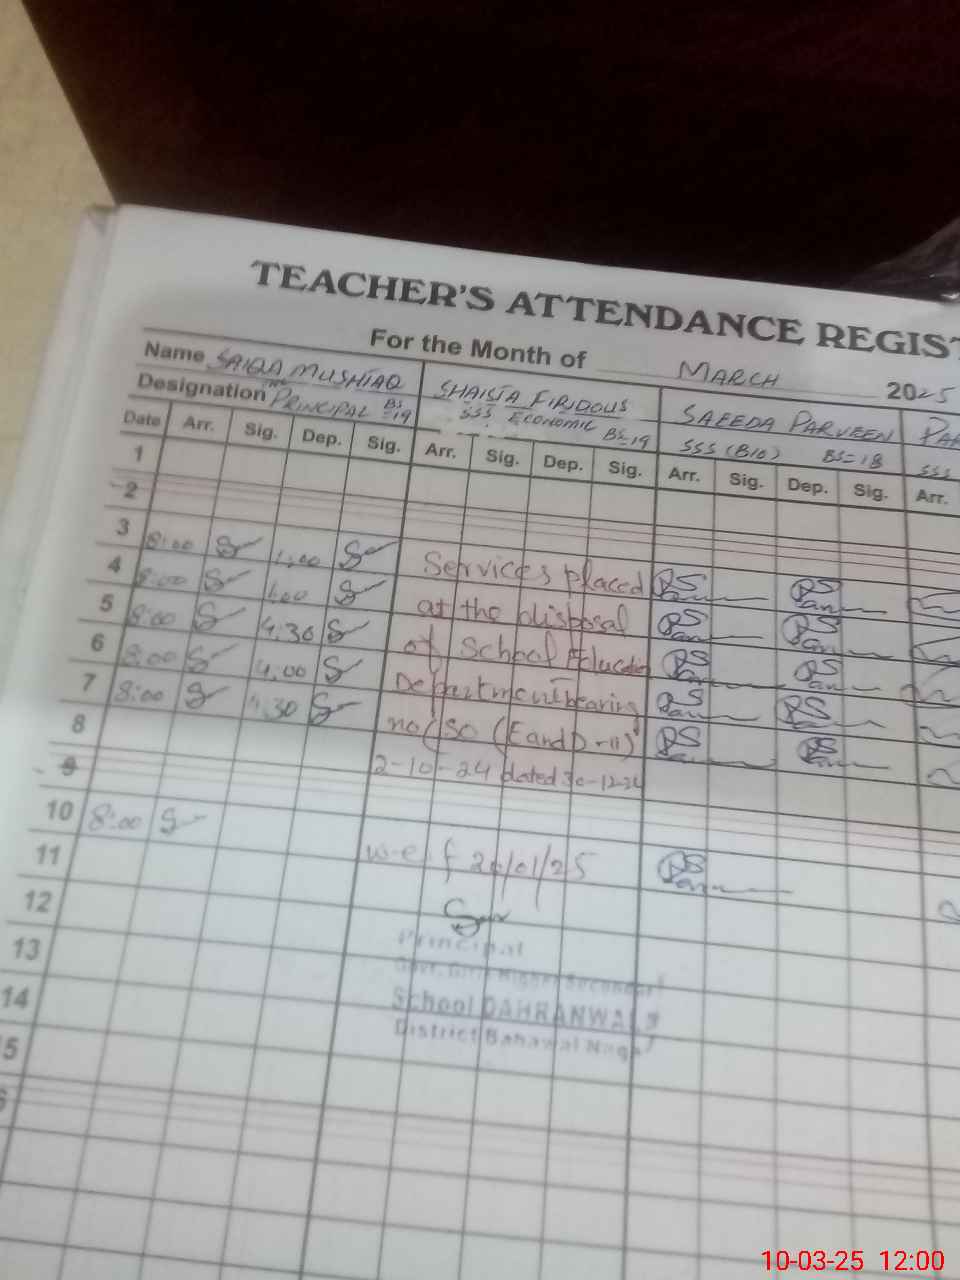 TEACHER'S ATTENDANCE REGIST
For the Month of MARCH 2025
Name SAIQA MUSHTAQ SHAISTA FIRDOUS SAEEDA PARVEEN
Designation PRINCIPAL BS-19 SSS ECONOMIC BS-19 SSS (BIO) BS=18 SSS
Date Arr. Sig. Dep. Sig. Arr. Sig. Dep. Sig. Arr. Sig. Dep. Sig. Arr.
1
2
3 8:00 1:00 Services placed
4 8:00 1:00 at the disposal
5 8:00 4:30 of School Education
6 8:00 4:00 Department bearing
7 8:00 4:30 no (SO (E and D-II)
8 2-10-24 dated 30-12-24
9
10 8:00
11 w-e-f
12
13 Principal
Govt. Girls Higher Secondary
14 School DAHRANWALA
District Bahawal Nagar
15
10-03-25 12:00